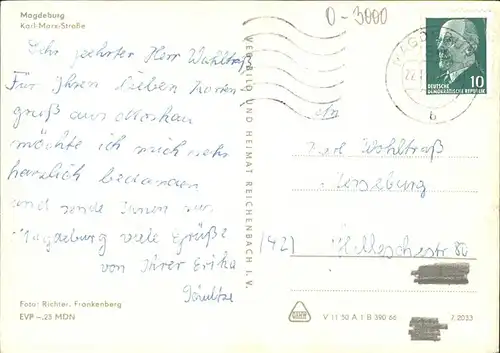 Magdeburg
Karl-Marx-Straße
Sehr geehrter Herr Wohltraß
Für Ihren lieben Karten-
gruß aus Moskau
möchte ich mich sehr
herzlich bedanken
und sende Ihnen aus
Magdeburg viele Grüße
von Ihrer Erika
Foto: Richter, Frankenberg
EVP –.23 MDN
VERLAG BILD UND HEIMAT REICHENBACH I. V.
0-3000
MAGDEBURG
b
DEUTSCHE
DEMOKRATISCHE REPUBLIK
10
Wohltraß
Merseburg
(42)
Halleschestr 80
V 11 50 A 1 B 390 66
7.2033